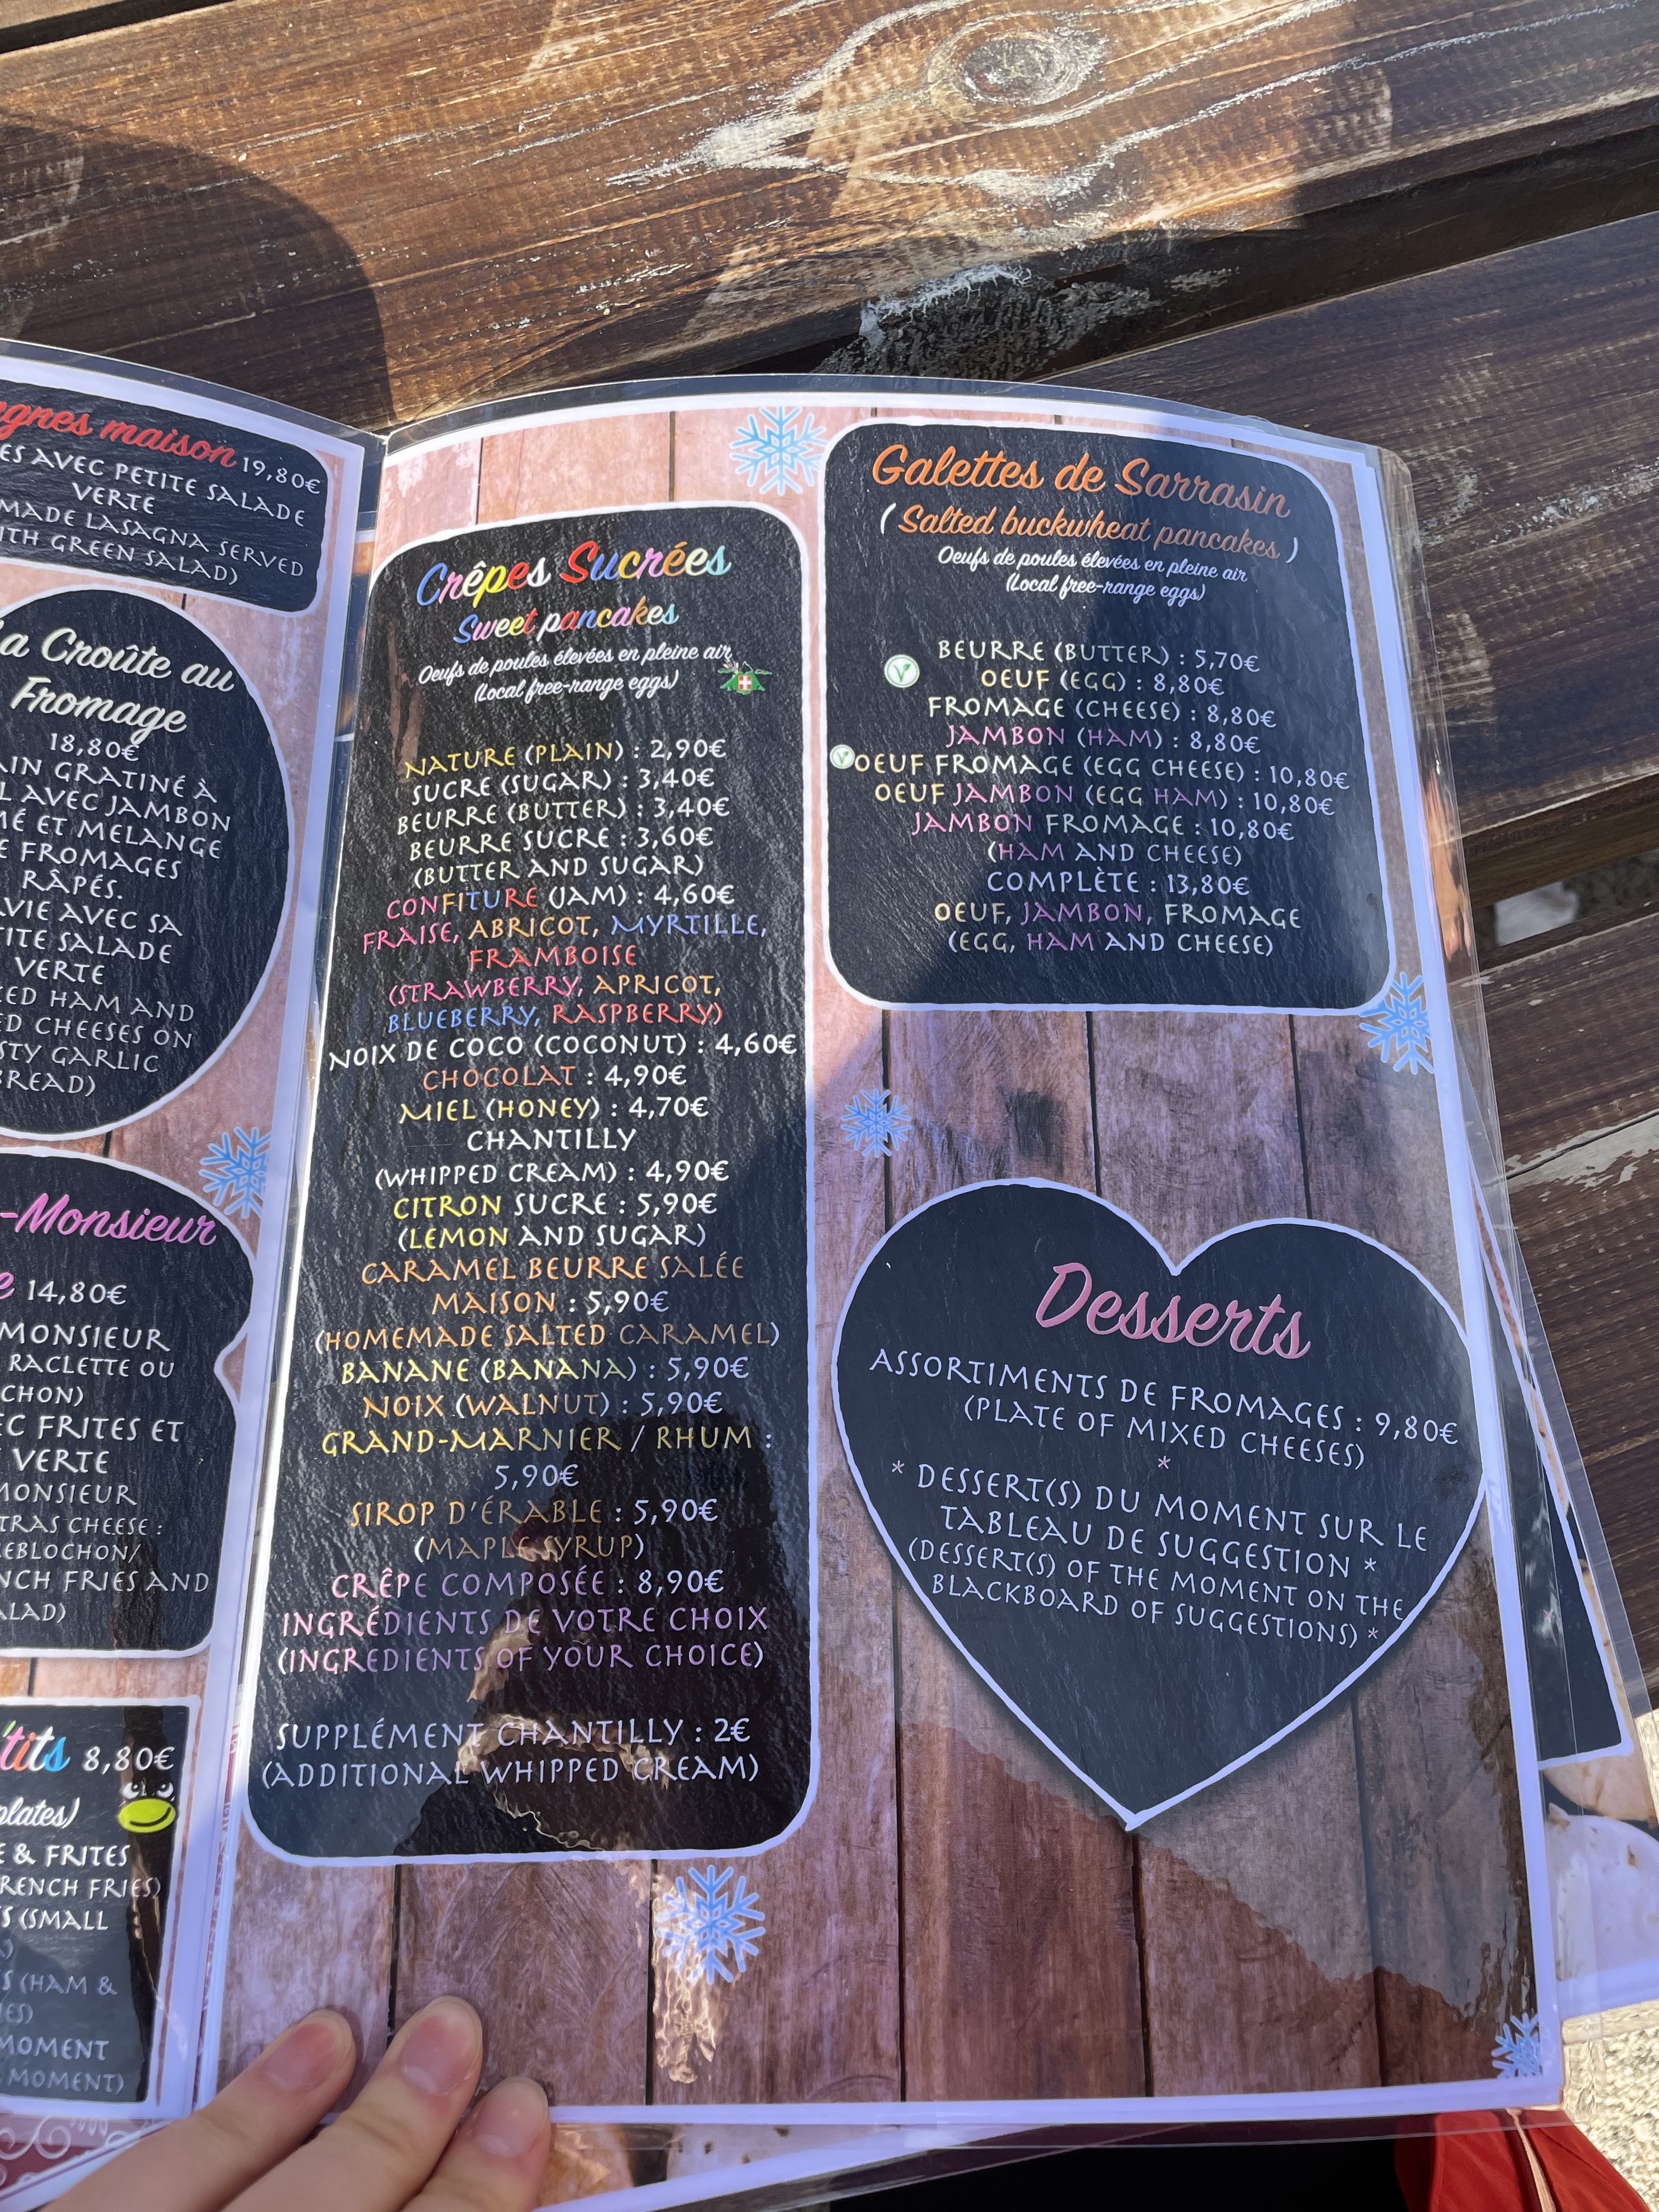 agnes maison 19,80€
ES AVEC PETITE SALADE
VERTE
MADE LASAGNA SERVED
ITH GREEN SALAD)
La Croûte au
Fromage
18,80€
AIN GRATINÉ À
L AVEC JAMBON
MÉ ET MELANGE
E FROMAGES
RÂPÉS.
VIE AVEC SA
TITE SALADE
VERTE
ED HAM AND
ED CHEESES ON
STY GARLIC
BREAD)
-Monsieur
e 14,80€
MONSIEUR
RACLETTE OU
CHON)
EC FRITES ET
VERTE
MONSIEUR
TRAS CHEESE :
EBLOCHON/
NCH FRIES AND
ALAD)
'tits 8,80€
plates)
E & FRITES
RENCH FRIES)
S (SMALL
S (HAM &
IES)
MOMENT
MOMENT)
Crêpes Sucrées
Sweet pancakes
Oeufs de poules élevées en pleine air
(Local free-range eggs)
NATURE (PLAIN) : 2,90€
SUCRE (SUGAR) : 3,40€
BEURRE (BUTTER) : 3,40€
BEURRE SUCRE : 3,60€
(BUTTER AND SUGAR)
CONFITURE (JAM) : 4,60€
FRAISE, ABRICOT, MYRTILLE,
FRAMBOISE
(STRAWBERRY, APRICOT,
BLUEBERRY, RASPBERRY)
NOIX DE COCO (COCONUT) : 4,60€
CHOCOLAT : 4,90€
MIEL (HONEY) : 4,70€
CHANTILLY
(WHIPPED CREAM) : 4,90€
CITRON SUCRE : 5,90€
(LEMON AND SUGAR)
CARAMEL BEURRE SALÉE
MAISON : 5,90€
(HOMEMADE SALTED CARAMEL)
BANANE (BANANA) : 5,90€
NOIX (WALNUT) : 5,90€
GRAND-MARNIER / RHUM :
5,90€
SIROP D'ÉRABLE : 5,90€
(MAPLE SYRUP)
CRÊPE COMPOSÉE : 8,90€
INGRÉDIENTS DE VOTRE CHOIX
(INGREDIENTS OF YOUR CHOICE)
SUPPLÉMENT CHANTILLY : 2€
(ADDITIONAL WHIPPED CREAM)
Galettes de Sarrasin
( Salted buckwheat pancakes )
Oeufs de poules élevées en pleine air
(Local free-range eggs)
BEURRE (BUTTER) : 5,70€
V OEUF (EGG) : 8,80€
FROMAGE (CHEESE) : 8,80€
JAMBON (HAM) : 8,80€
V OEUF FROMAGE (EGG CHEESE) : 10,80€
OEUF JAMBON (EGG HAM) : 10,80€
JAMBON FROMAGE : 10,80€
(HAM AND CHEESE)
COMPLÈTE : 13,80€
OEUF, JAMBON, FROMAGE
(EGG, HAM AND CHEESE)
Desserts
ASSORTIMENTS DE FROMAGES : 9,80€
(PLATE OF MIXED CHEESES)
*
* DESSERT(S) DU MOMENT SUR LE
TABLEAU DE SUGGESTION *
(DESSERT(S) OF THE MOMENT ON THE
BLACKBOARD OF SUGGESTIONS) *